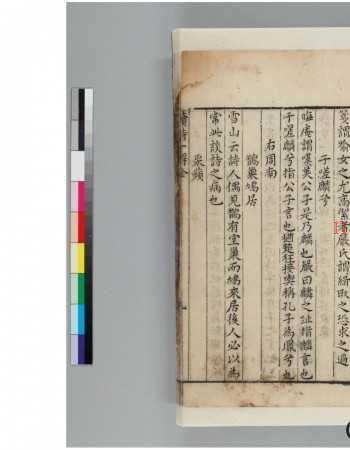 箋謂喻女之尤高絜者嚴氏謂紛取之恐求之過
于嗟麟兮
晦庵謂嘆美公子是乃麟也嚴曰麟之趾指麟言也
于嗟麟兮指公子言也猶楚狂接輿稱孔子為鳳兮也
右周南
鵲巢鳩居
雪山云詩人偶見鵲有空巢而鳩來居後人必以為
常此談詩之病也
采蘋